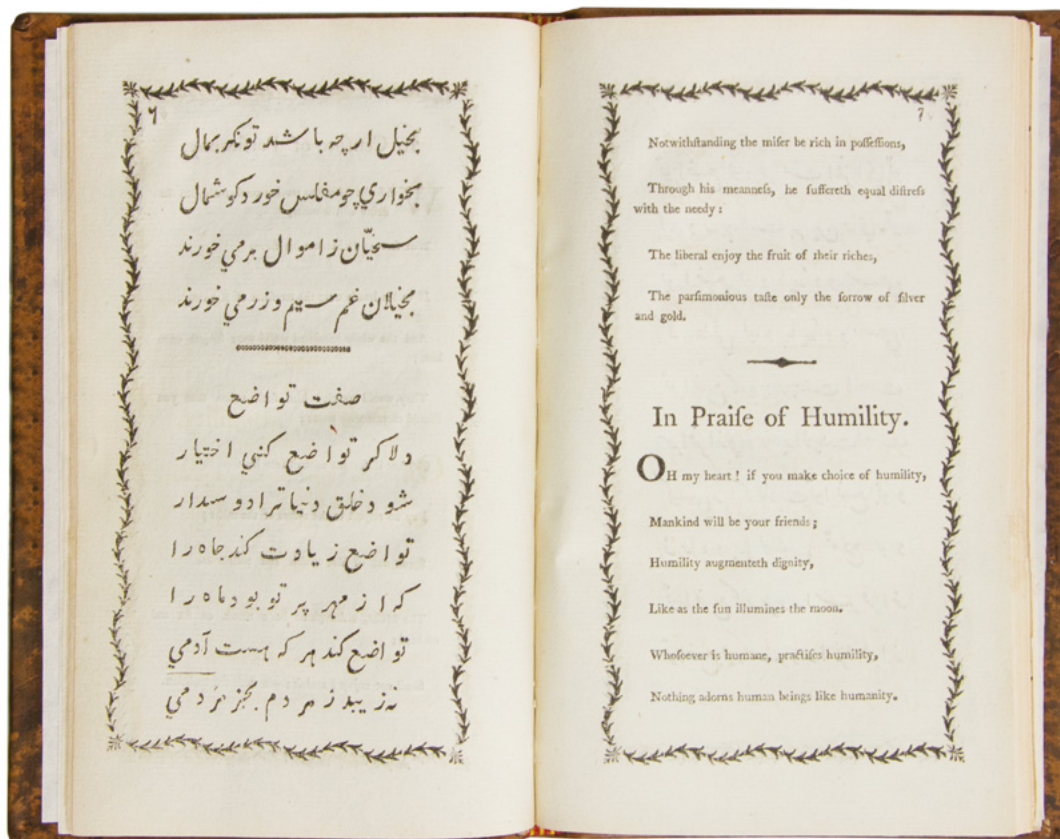 ۶
بخیل ارچه باشد تونکر بمال
بخواري چو مفلس خورد کوشمال
سخیّان زاموال برمي خورند
بخیلان غم سیم وزرمي خورند
صفت تواضع
دلا کر تواضع کني اختیار
شود خلق دنیا ترا دوسدار
تواضع زیادت کند جاه را
که از مهر پر تو بود ماه را
تواضع کند هر که هست آدمي
نه زیبد ز مردم بجز مردمي
7
Notwithſtanding the miſer be rich in poſſeſſions,
Through his meanneſs, he ſuffereth equal diſtreſs
with the needy:
The liberal enjoy the fruit of their riches,
The parſimonious taſte only the ſorrow of ſilver
and gold.
In Praiſe of Humility.
OH my heart! if you make choice of humility,
Mankind will be your friends;
Humility augmenteth dignity,
Like as the ſun illumines the moon.
Whoſoever is humane, practiſes humility,
Nothing adorns human beings like humanity.